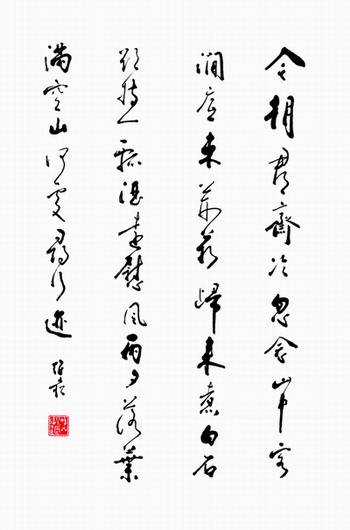 今朝郡齋冷忽念山中客
澗底束荊薪歸来煮白石
欲持一瓢酒遠慰風雨夕落葉
滿空山何處尋行迹